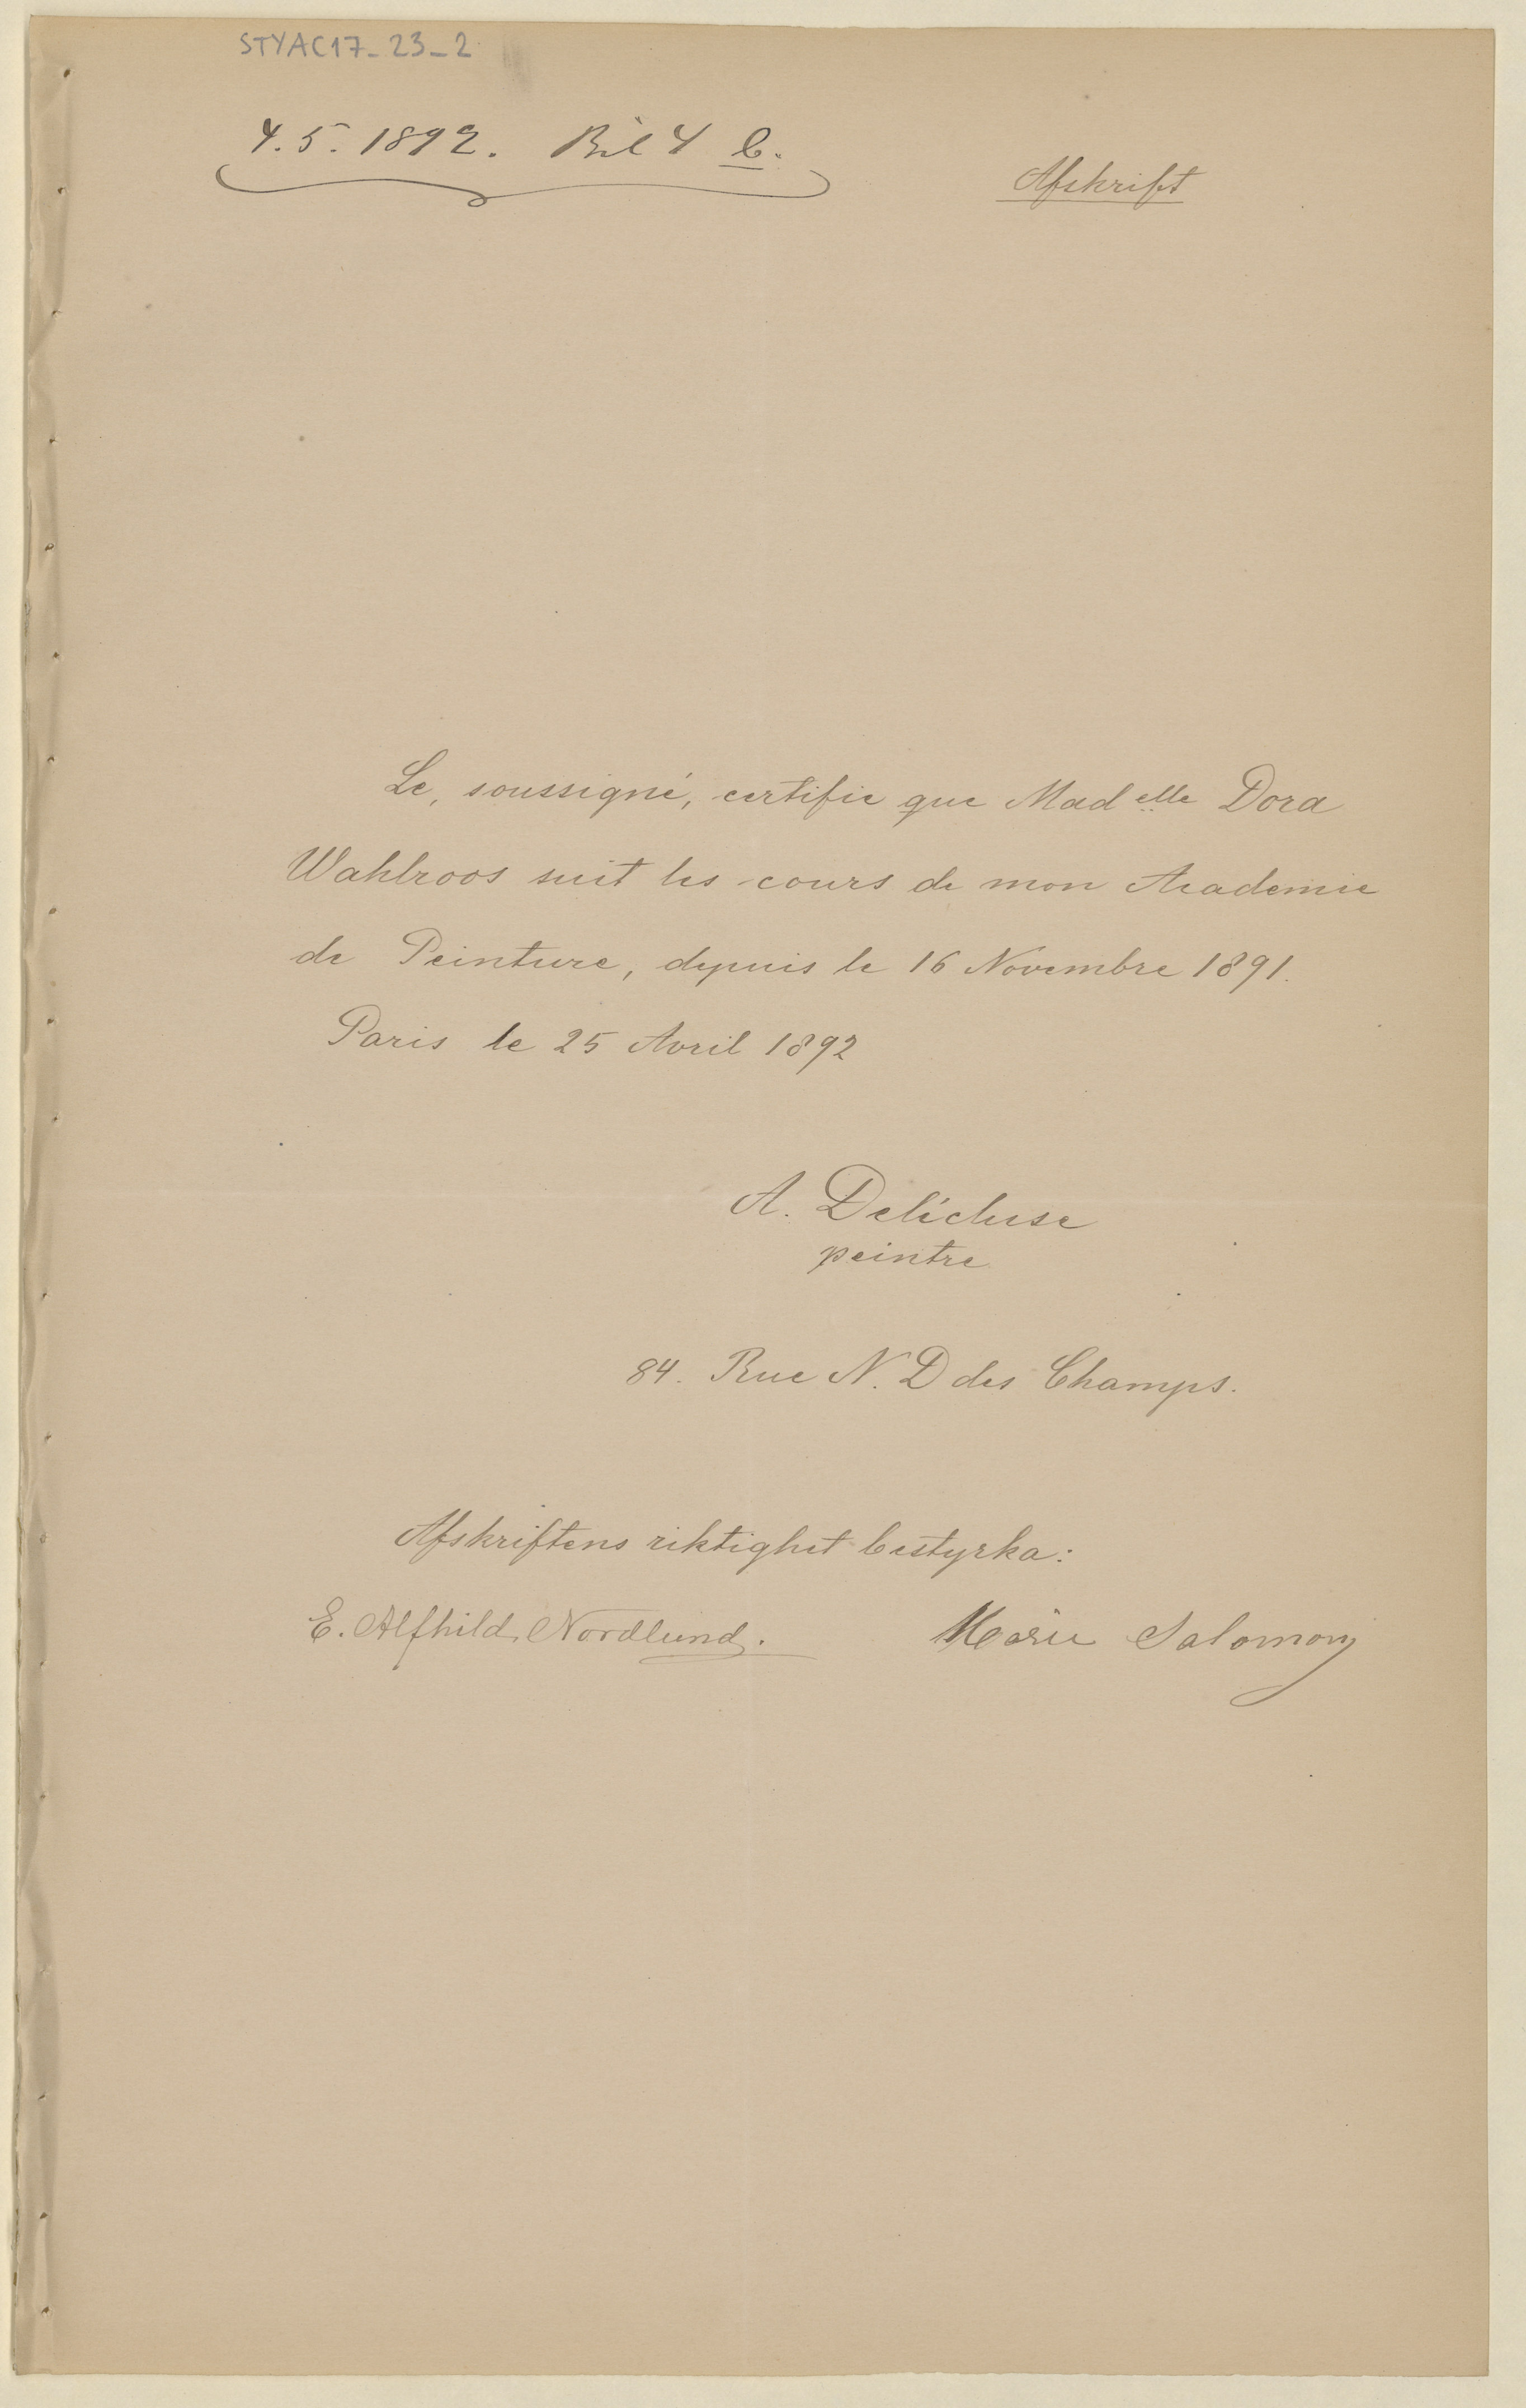 STYAC17_23_2
4.5.1892. Bil 4 b.
Afskrift
Le, soussigné, certifie que Mad elle Dora
Wahlroos suit les cours de mon Academie
de Peinture, depuis le 16 Novembre 1891.
Paris le 25 Avril 1892
A. Delécluse
peintre
84. Rue N. D des Champs.
Afskriftens riktighet bestyrka:
E. Alfhild Nordlund. Marie Salomon